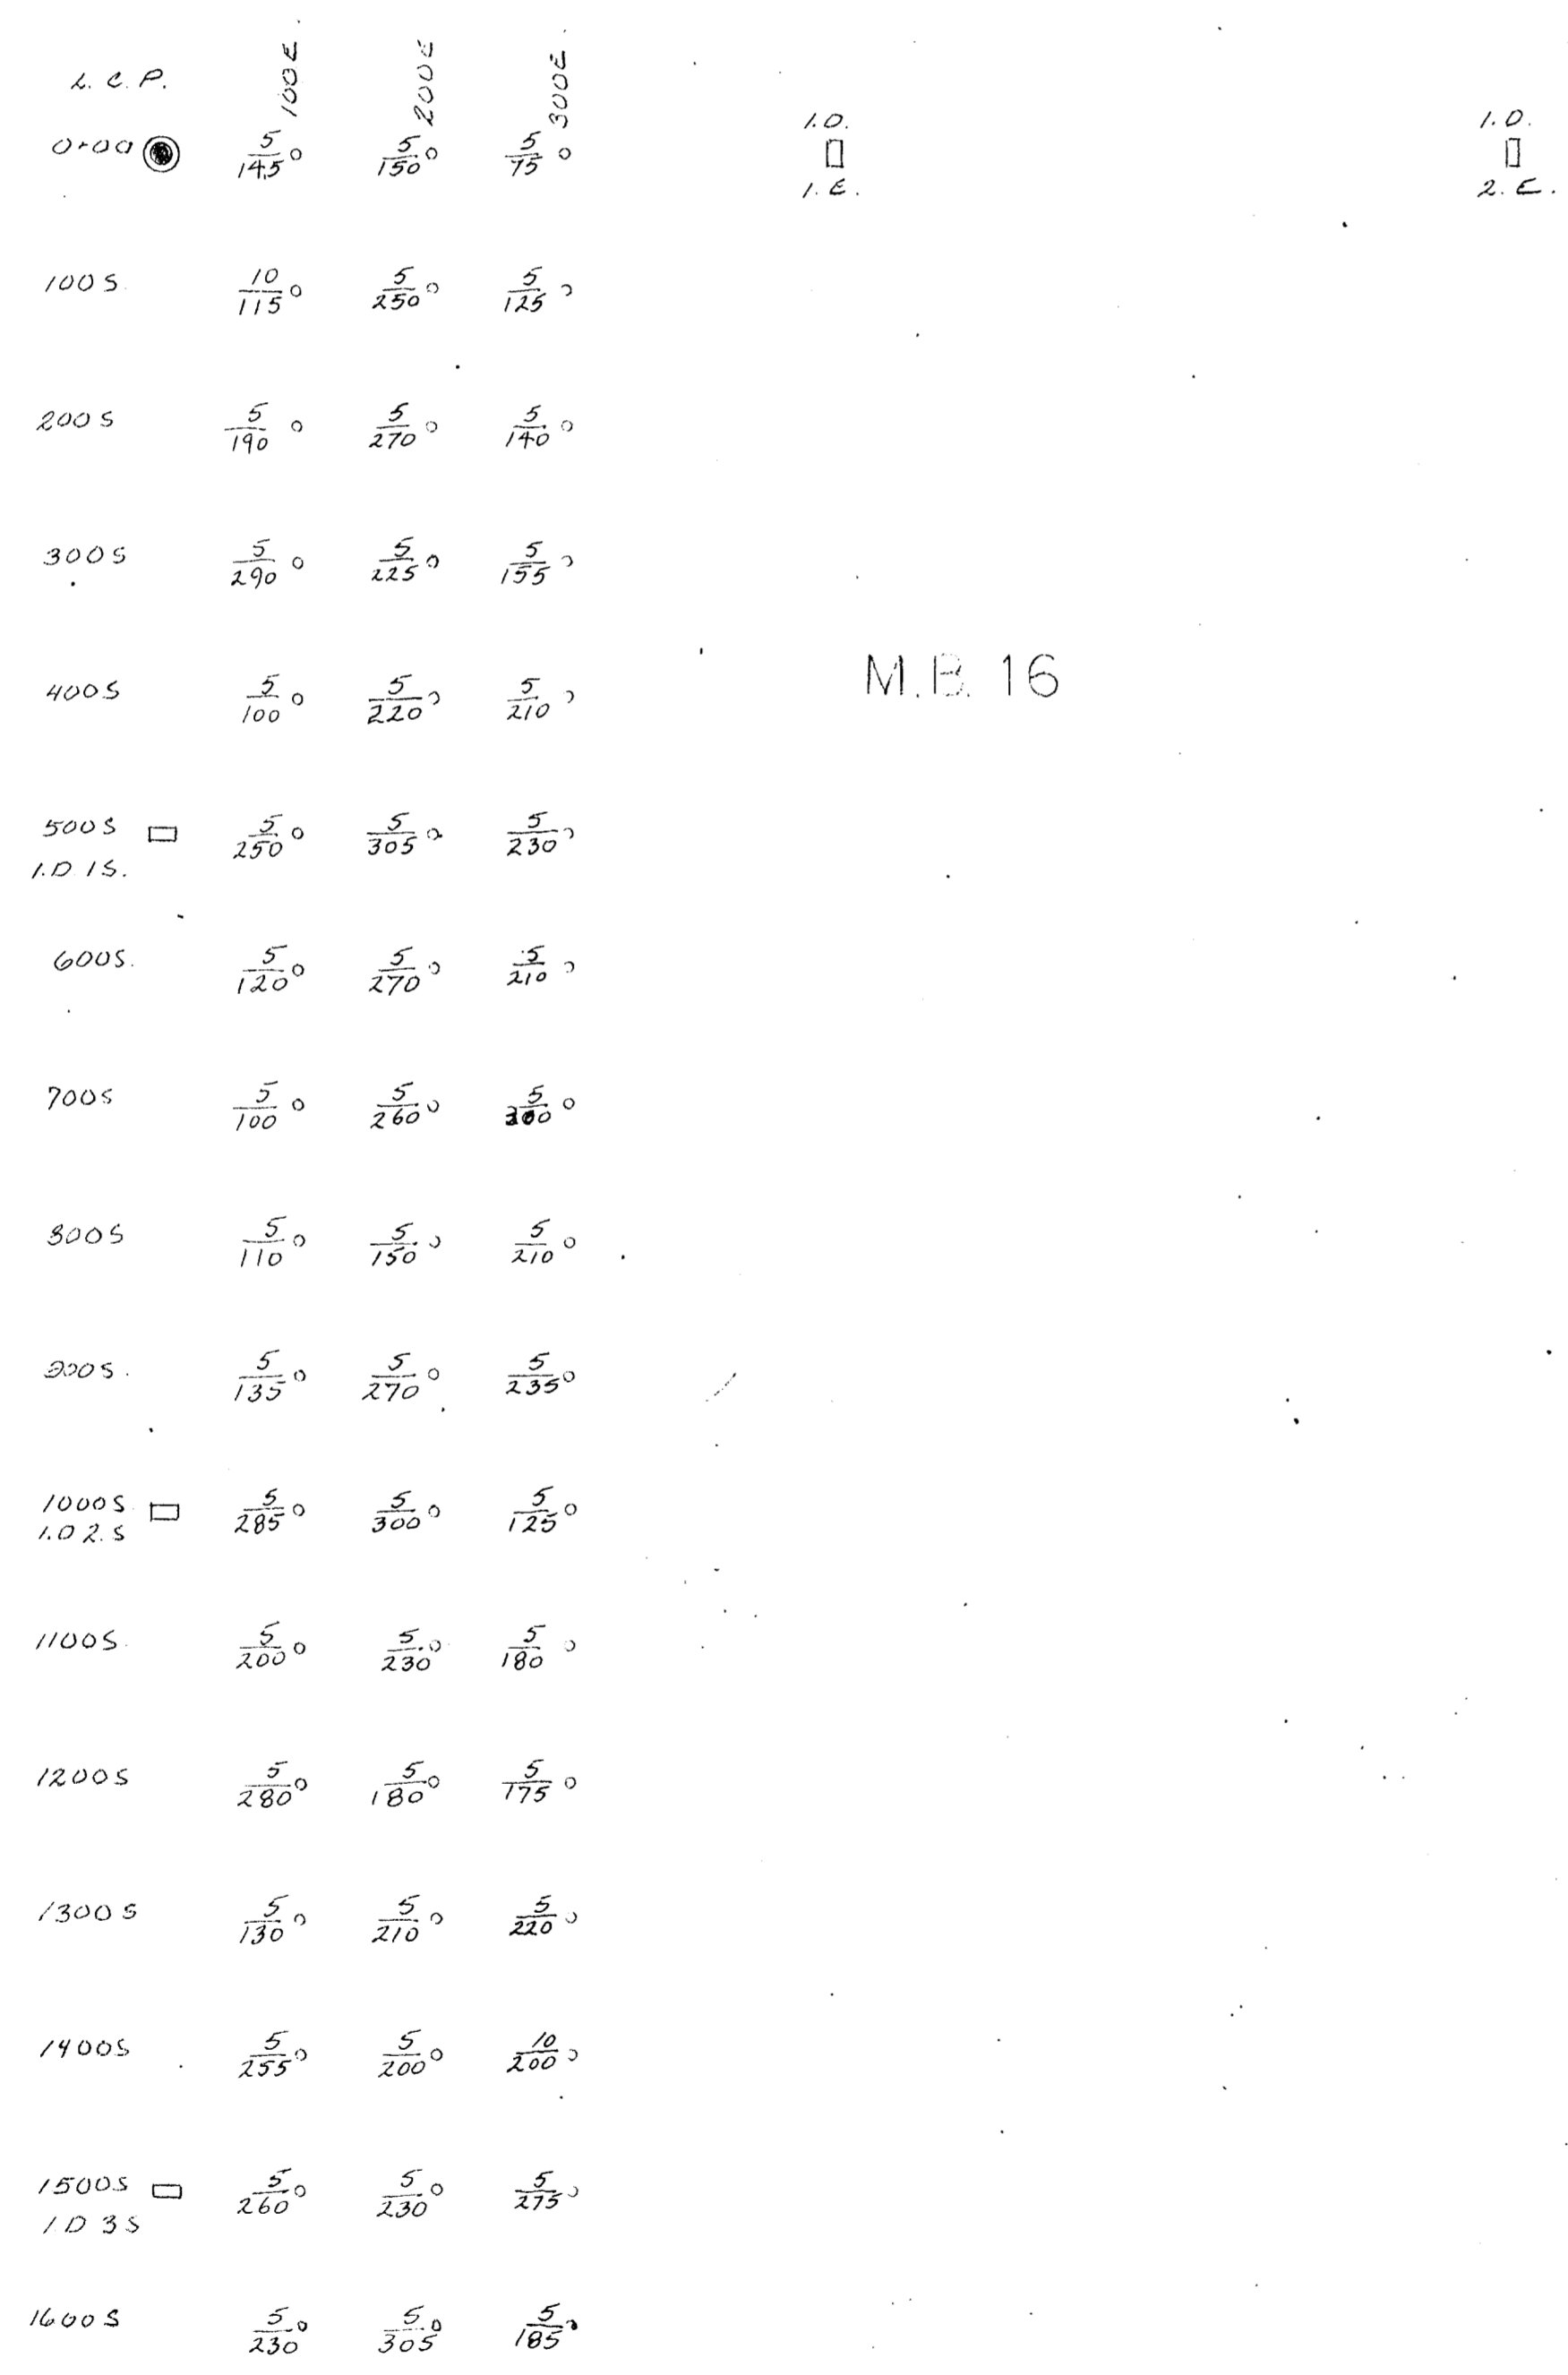 L.C.P. 100E. 200E 300E.
0+00 5/145 5/150 5/75 I.D. 1.E. I.D. 2.E.
100S. 10/115 5/250 5/125
200S 5/190 5/270 5/140
300S 5/290 5/225 5/155
400S 5/100 5/220 5/210
M.B. 16
500S 5/250 5/305 5/230
I.D 1S.
600S. 5/120 5/270 5/210
700S 5/100 5/260 5/
800S 5/110 5/150 5/210
900S. 5/135 5/270 5/235
1000S 5/285 5/300 5/125
I.D 2.S
1100S. 5/200 5/230 5/180
1200S 5/280 5/180 5/175
1300S 5/130 5/210 5/220
1400S 5/255 5/200 10/200
1500S 5/260 5/230 5/275
I D 3S
1600S 5/230 5/305 5/185